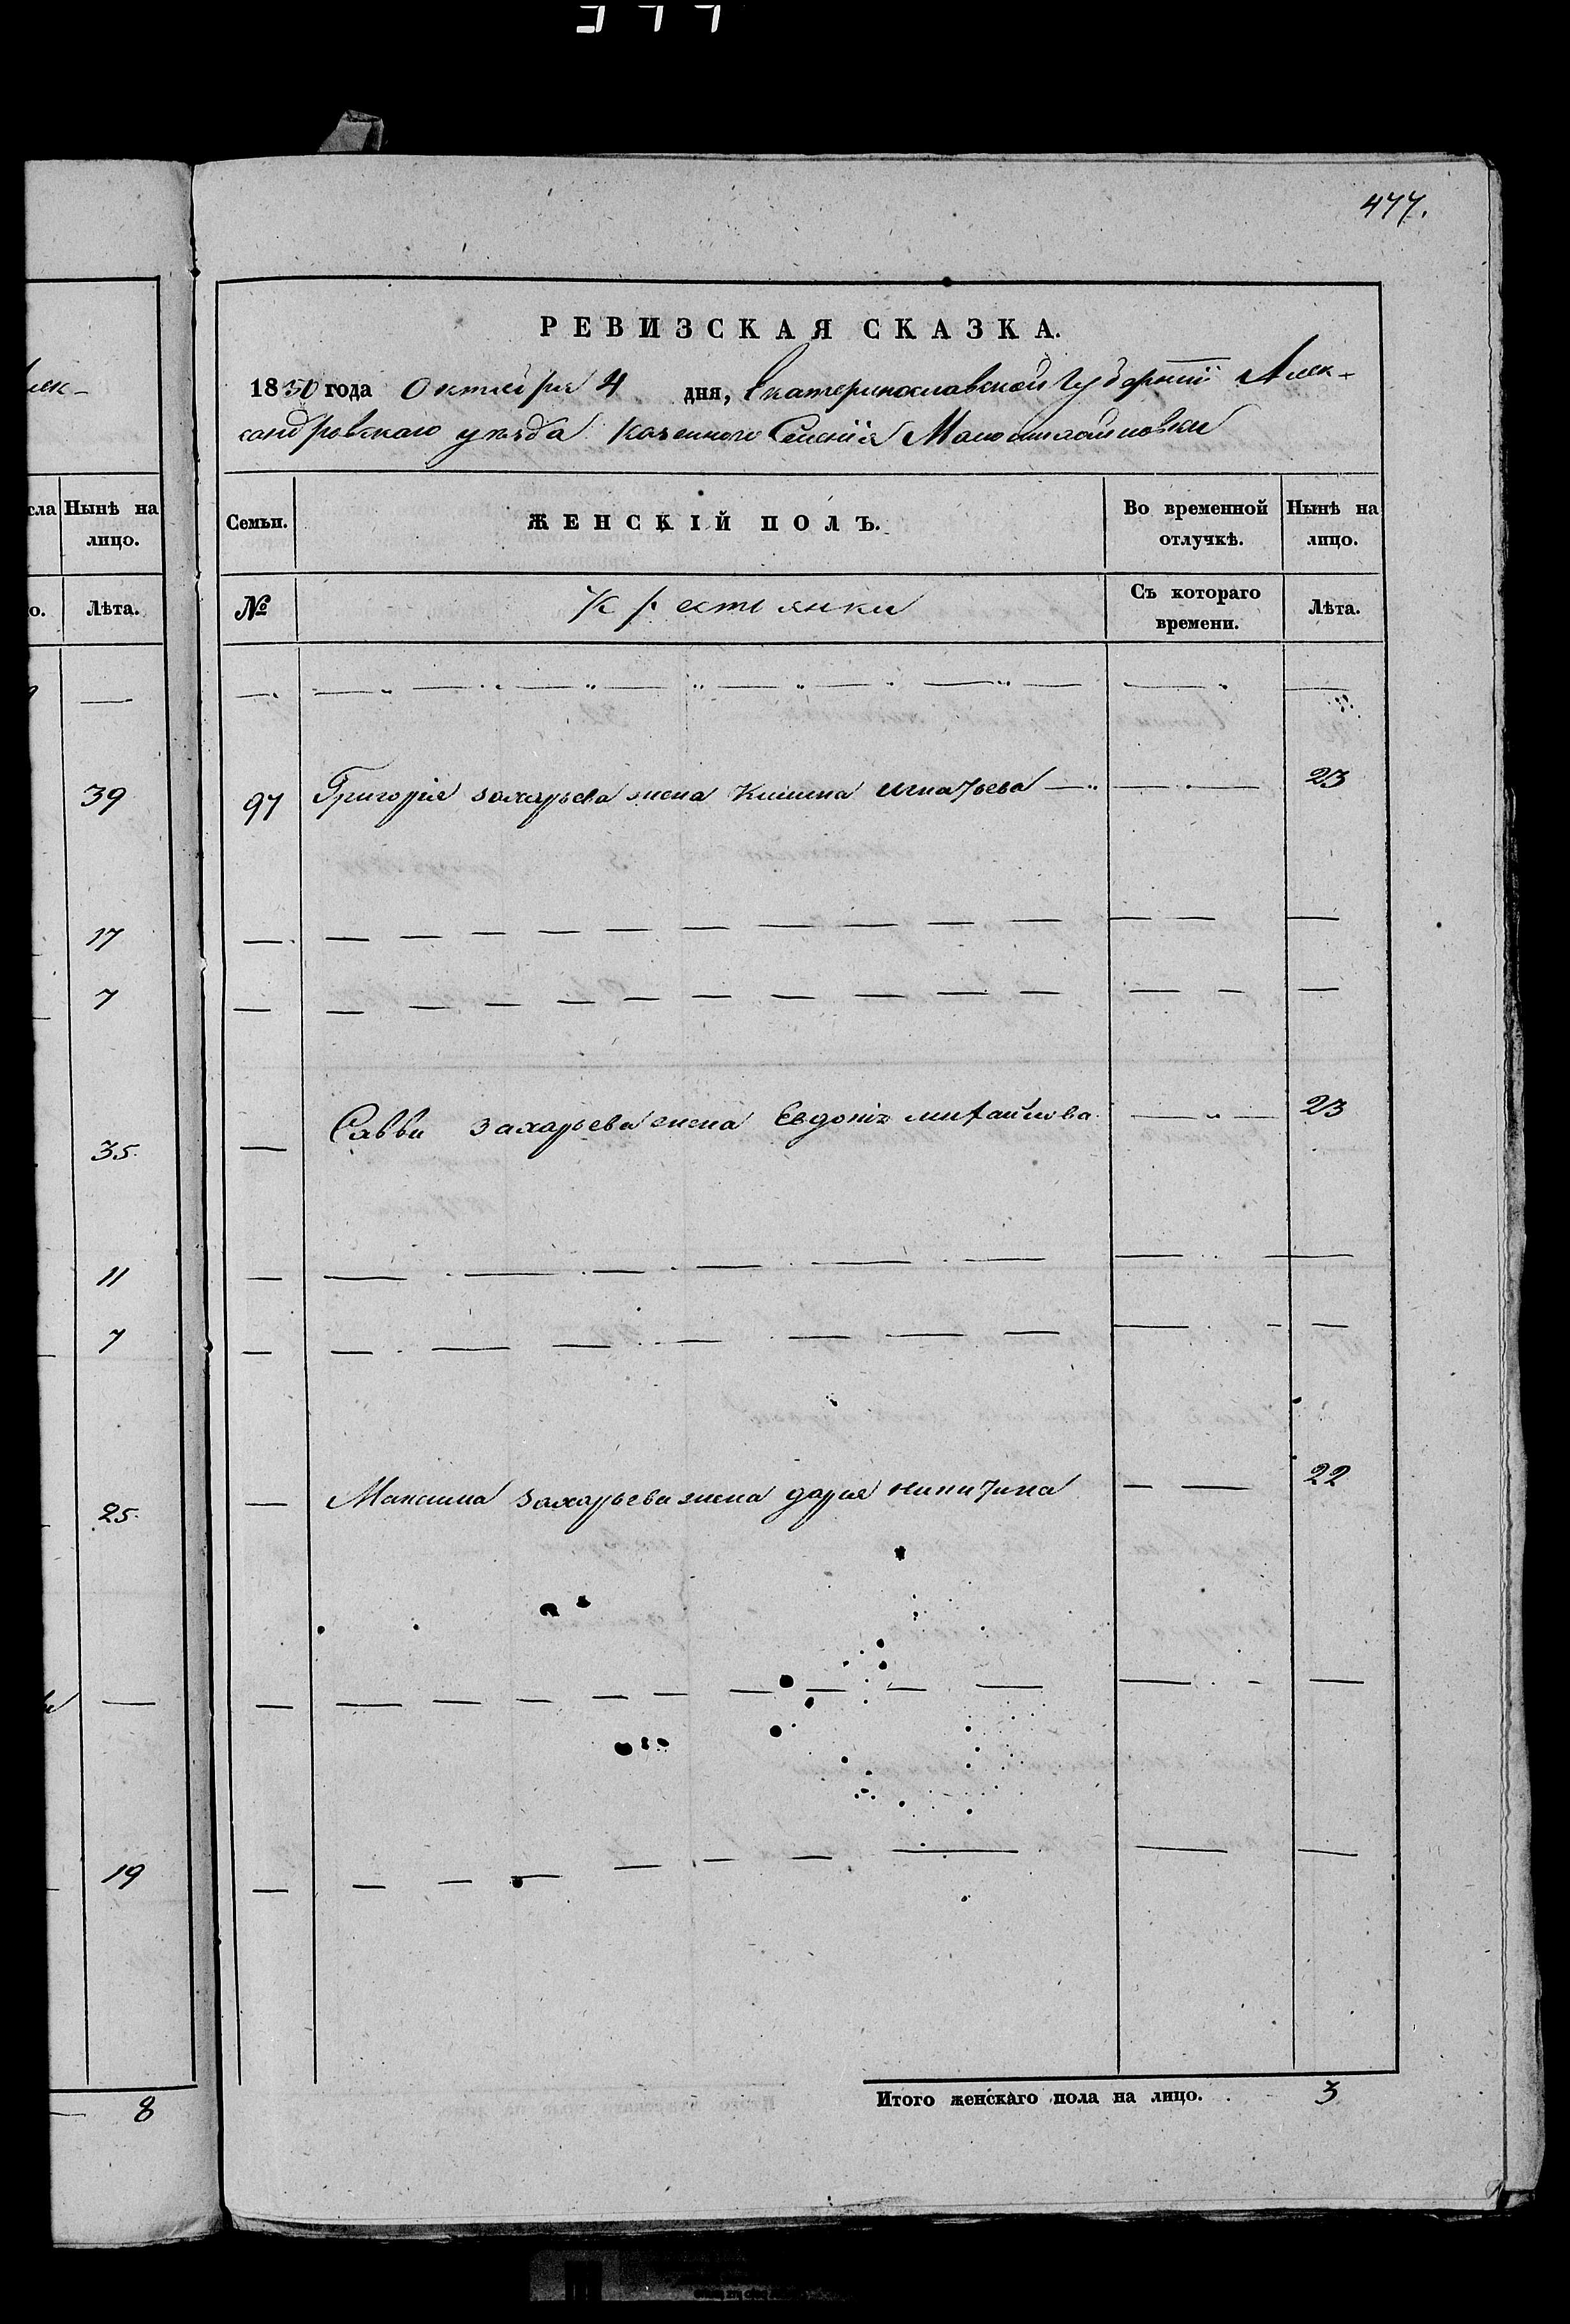 477.
РЕВИЗСКАЯ СКАЗКА.
1850 года Октября 4 дня, Екатеринославской Губернии Алек-
сандровскаго уезда казенного Селения
Семьи. ЖЕНСКІЙ ПОЛЪ. Во временной отлучкѣ. Нынѣ на лицо.
№ Крестьянки Съ котораго времени. Лѣта.
97 Григорія захарьева жена игнатьева 23
Саввы захарьева жена Евдокія михайлова 23
Максима захарьева жена дарья никитина 22
Итого женскаго пола на лицо. 3
лек-
сла Нынѣ на лицо.
о. Лѣта.
39
17
7
35.
11
7
25.
19
8